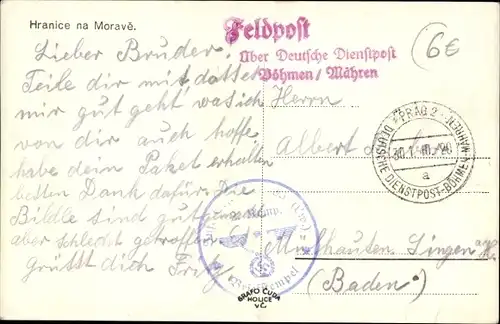 Hranice na Moravě.
Feldpost
Über Deutsche Dienstpost
Böhmen / Mähren
6€
Lieber Bruder.
Teile dir mit, dass es
mir gut geht was ich
von dir auch hoffe
habe dein Paket erhalten
besten Dank dafür. Die
Bilder sind gut
aber schlecht getroffen
Grüsst dich Fritz
Herrn
Albert
Mülhausen Singen
(Baden)
PRAG 2
30.1.40.-20
a
DEUTSCHE DIENSTPOST-BÖHMEN-MÄHREN
GRAFO ČUDA
HOLICE
V.Č.